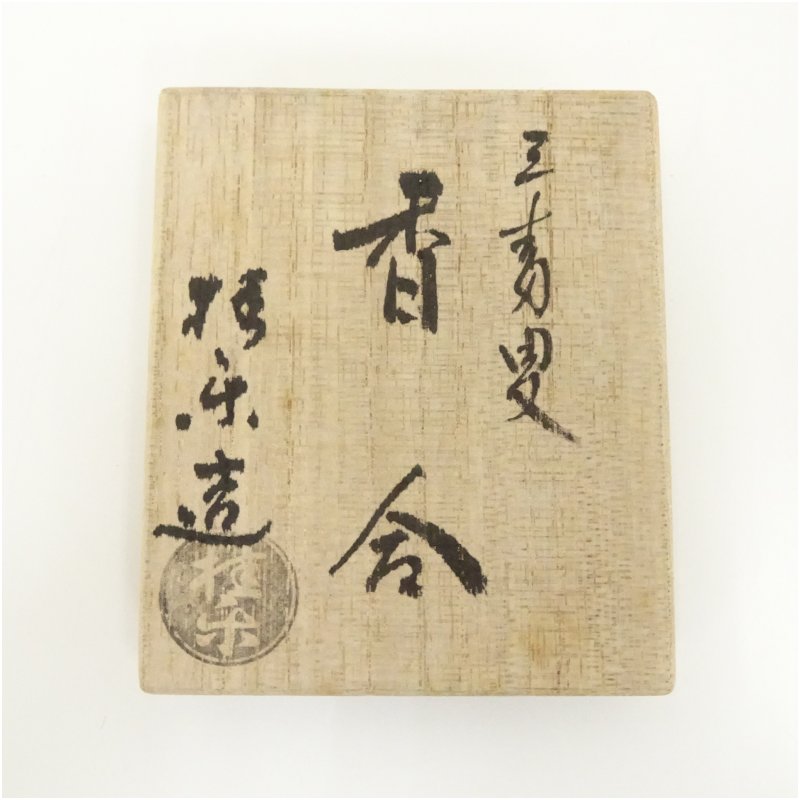 三番叟
香合
桂楽造
桂楽